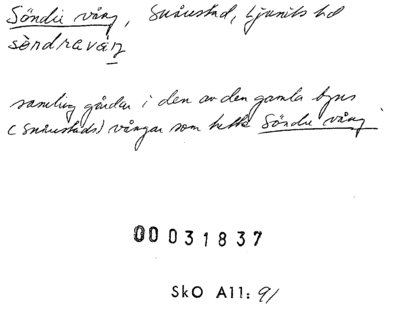 Söndre vång, Snårestad, Ljunits hd
sèndravàŋ
samling gårdar i den av den gamla byns
(Snårestads) vångar som hette Söndre vång.
00031837
SkO All: 91